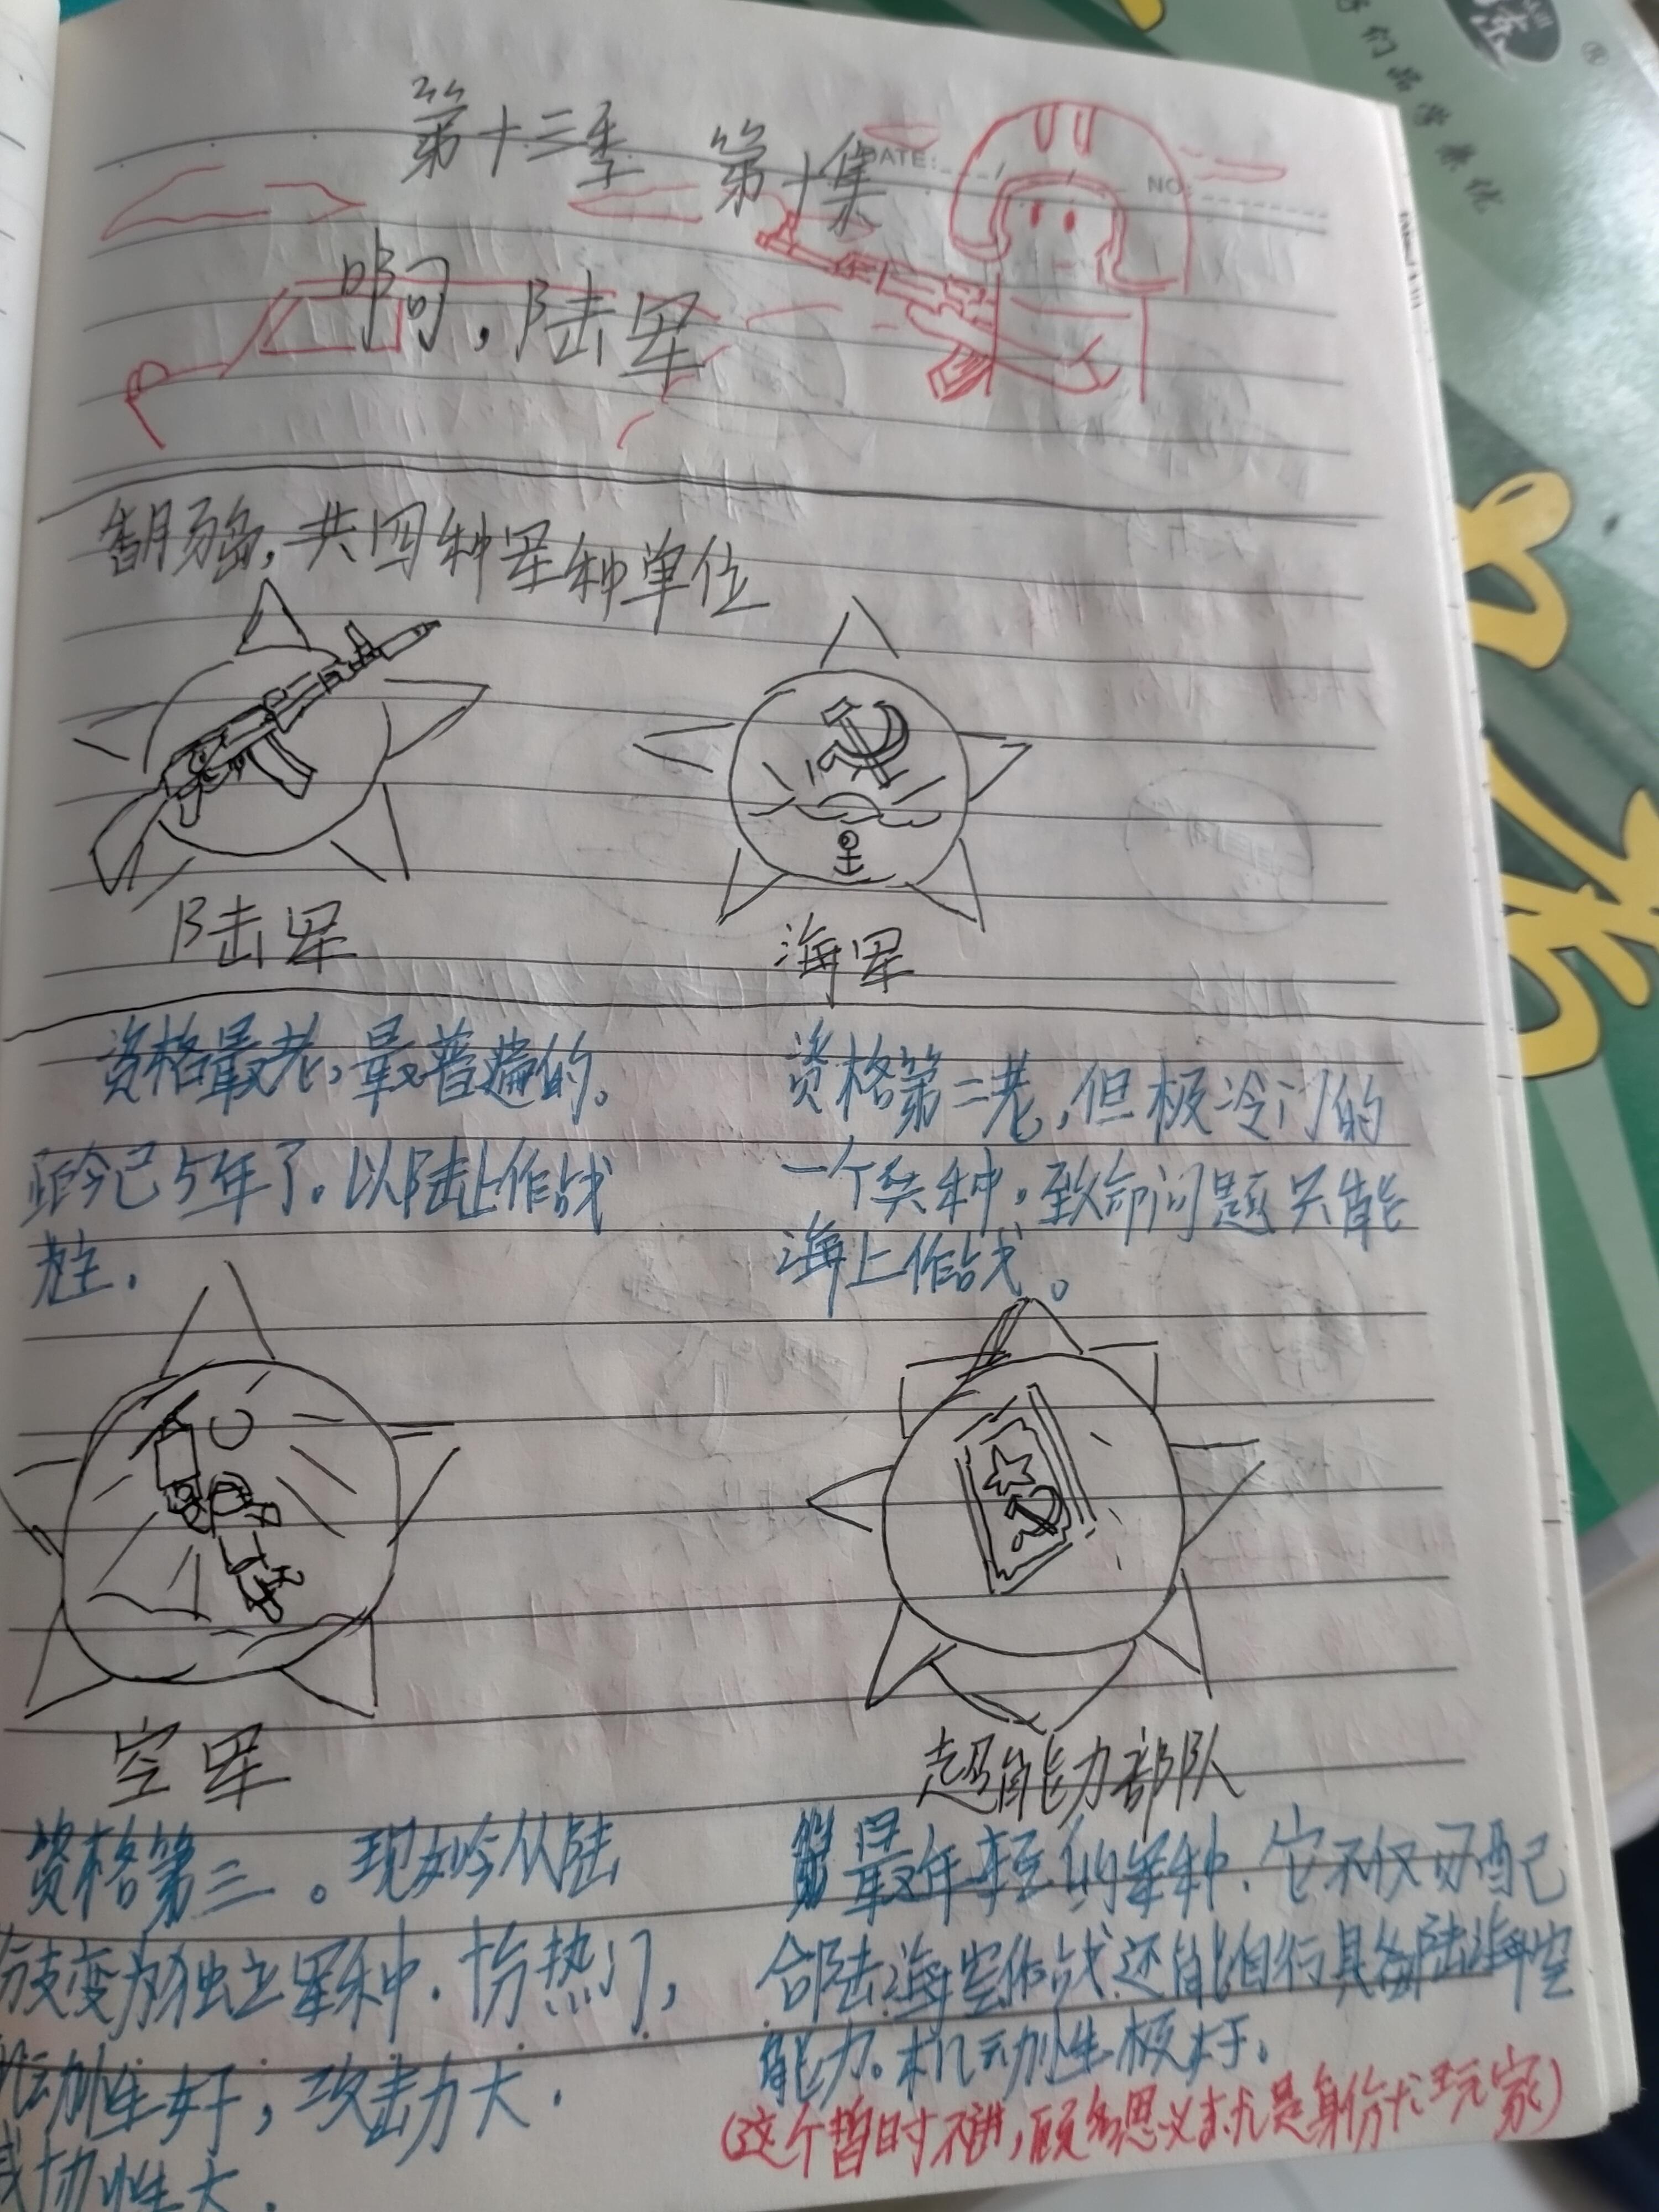 第十三季 第十集
DATE:
NO:
啊，陆军
共四种军种单位
陆军
海军
资格最老，最普遍的。
距今已5年了。以陆上作战
为主.
资格第二老，但极冷门的
一个兵种。致命问题只能
海上作战。
空军
超能力部队
资格第三。现如今从陆
分支变为独立军种.十分热门，
机动性好，攻击力大.
大.
最年轻的军种.它不仅可配
合陆海空作战还能自行具备陆海空
能力。机动性极好.
(这个暂时不讲，顾名思义就是身份尤玩家)
们品学兼优